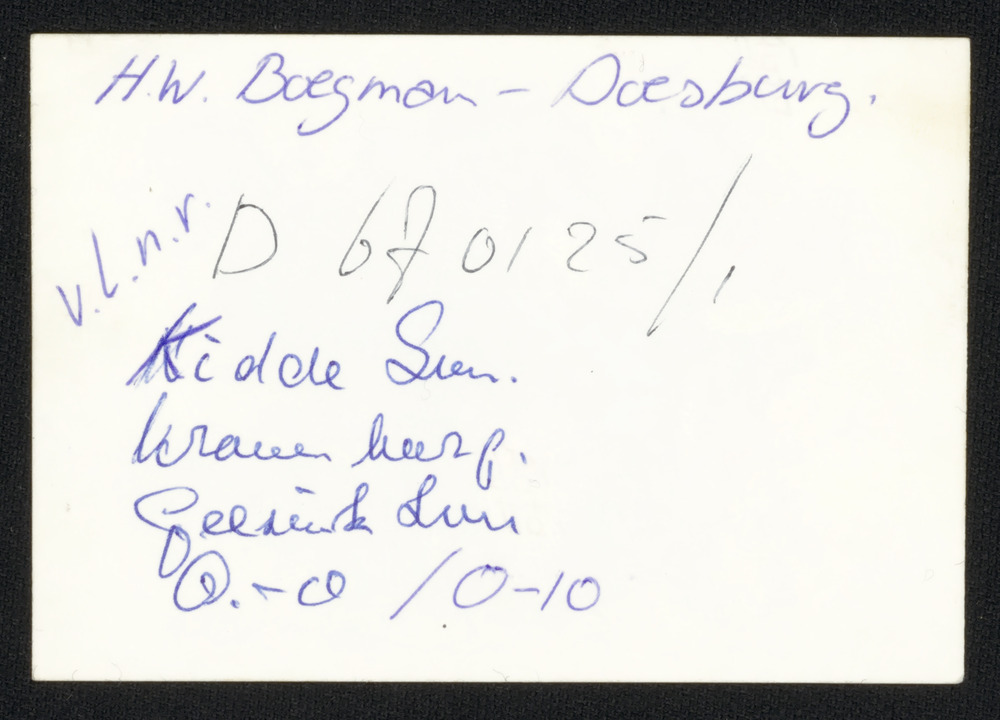 H.W. Boegman - Doesburg.
v.l.n.r.
D 670125/1
Kidde Sen.
Kranenburg.
Geesink Sen
O.-O /0-10